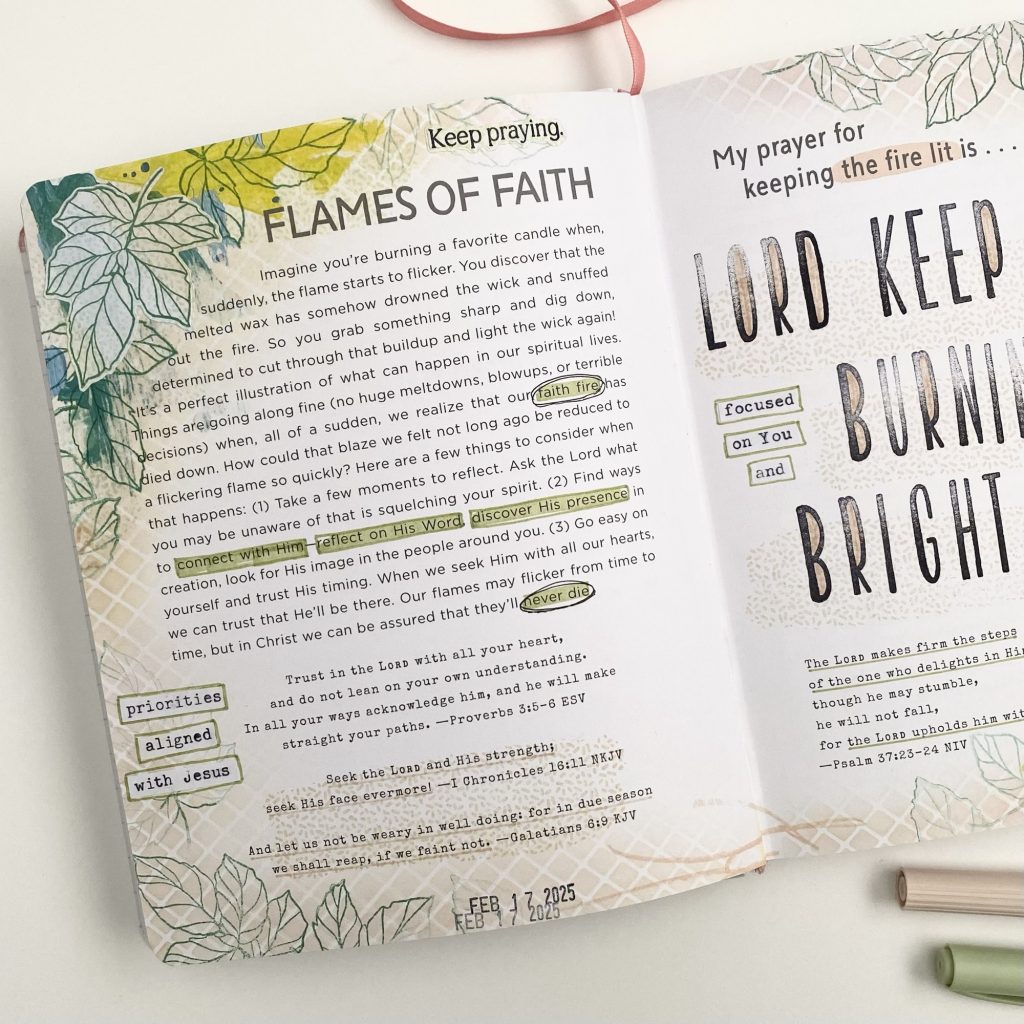 Keep praying.
FLAMES OF FAITH
Imagine you're burning a favorite candle when,
suddenly, the flame starts to flicker. You discover that the
melted wax has somehow drowned the wick and snuffed
out the fire. So you grab something sharp and dig down,
determined to cut through that buildup and light the wick again!
It's a perfect illustration of what can happen in our spiritual lives.
Things are going along fine (no huge meltdowns, blowups, or terrible
decisions) when, all of a sudden, we realize that our faith fire has
died down. How could that blaze we felt not long ago be reduced to
a flickering flame so quickly? Here are a few things to consider when
that happens: (1) Take a few moments to reflect. Ask the Lord what
you may be unaware of that is squelching your spirit. (2) Find ways
to connect with Him—reflect on His Word, discover His presence in
creation, look for His image in the people around you. (3) Go easy on
yourself and trust His timing. When we seek Him with all our hearts,
we can trust that He'll be there. Our flames may flicker from time to
time, but in Christ we can be assured that they'll never die.
Trust in the LORD with all your heart,
and do not lean on your own understanding.
In all your ways acknowledge him, and he will make
straight your paths. —Proverbs 3:5-6 ESV
priorities
aligned
with Jesus
Seek the LORD and His strength;
seek His face evermore! —I Chronicles 16:11 NKJV
And let us not be weary in well doing: for in due season
we shall reap, if we faint not. —Galatians 6:9 KJV
FEB 17 2025
FEB 17 2025
My prayer for
keeping the fire lit is . . . .
LORD KEEP
focused
on You
and
BURNIN
BRIGHT
The LORD makes firm the steps
of the one who delights in Him
though he may stumble,
he will not fall,
for the LORD upholds him with
—Psalm 37:23-24 NIV